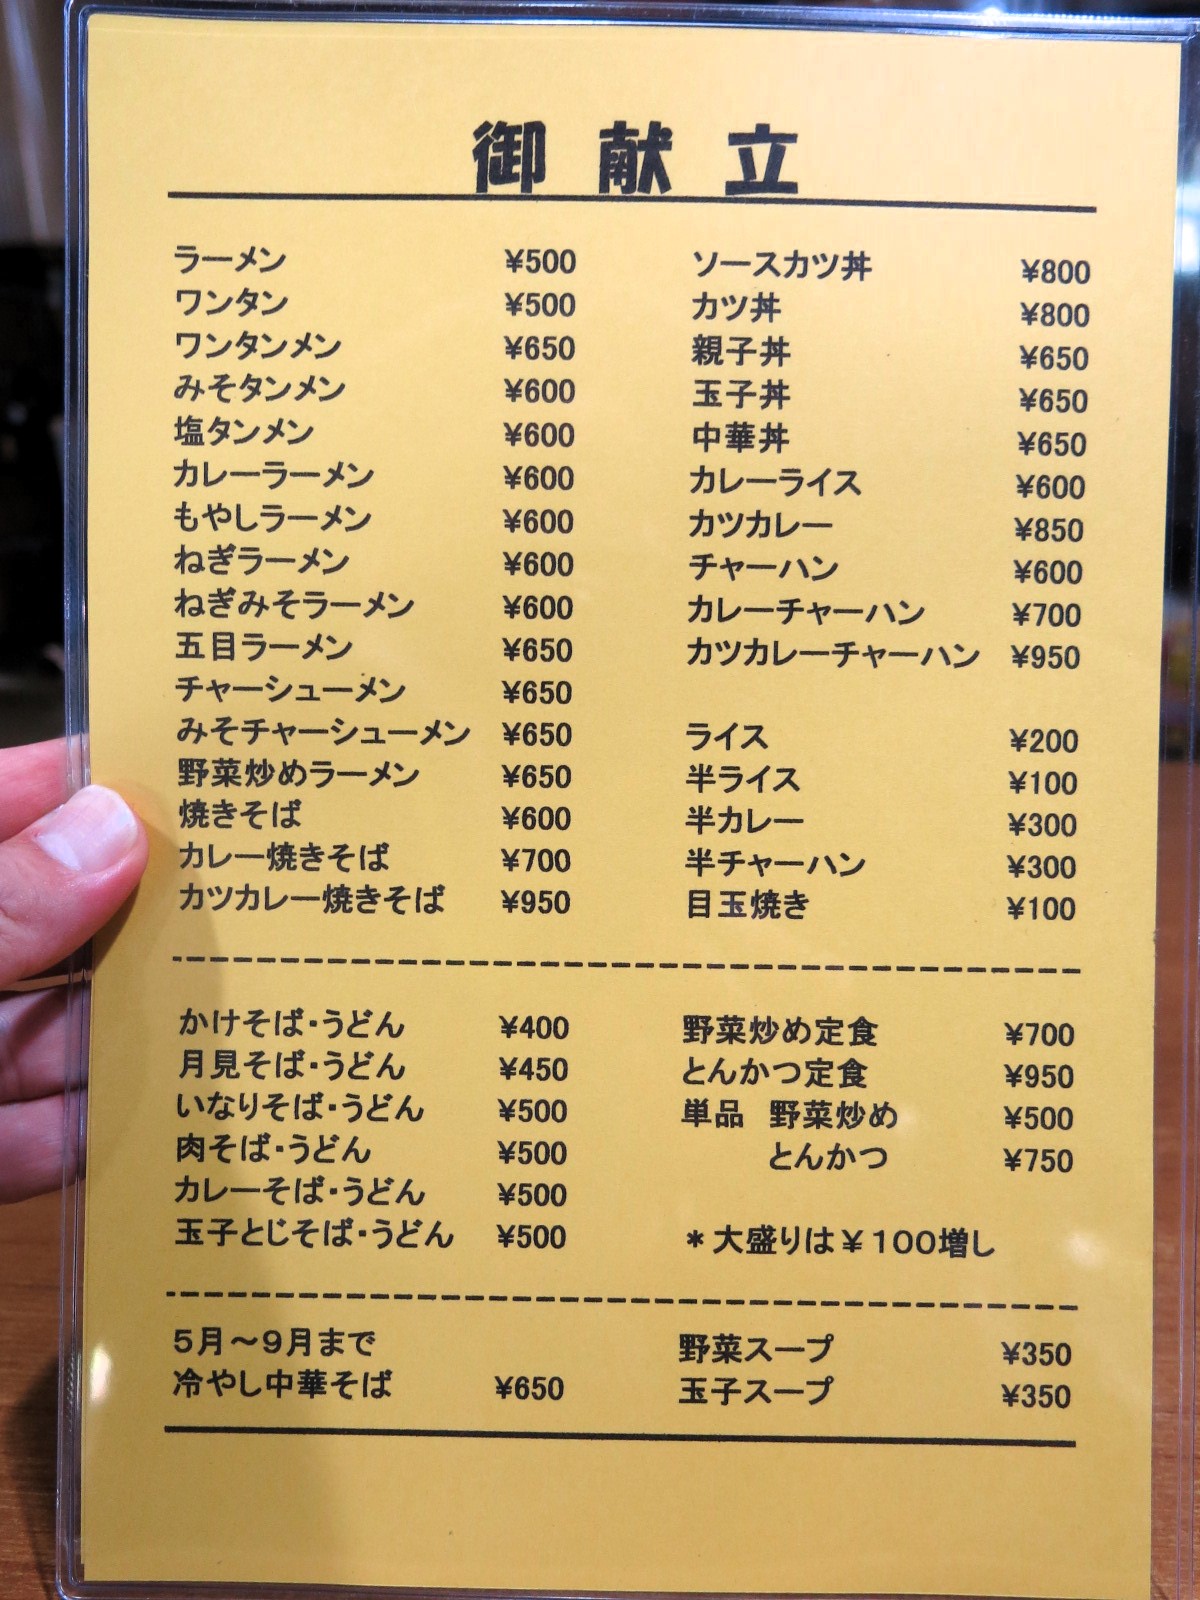 御献立
ラーメン ¥500
ワンタン ¥500
ワンタンメン ¥650
みそタンメン ¥600
塩タンメン ¥600
カレーラーメン ¥600
もやしラーメン ¥600
ねぎラーメン ¥600
ねぎみそラーメン ¥600
五目ラーメン ¥650
チャーシューメン ¥650
みそチャーシューメン ¥650
野菜炒めラーメン ¥650
焼きそば ¥600
カレー焼きそば ¥700
カツカレー焼きそば ¥950
ソースカツ丼 ¥800
カツ丼 ¥800
親子丼 ¥650
玉子丼 ¥650
中華丼 ¥650
カレーライス ¥600
カツカレー ¥850
チャーハン ¥600
カレーチャーハン ¥700
カツカレーチャーハン ¥950
ライス ¥200
半ライス ¥100
半カレー ¥300
半チャーハン ¥300
目玉焼き ¥100
かけそば・うどん ¥400
月見そば・うどん ¥450
いなりそば・うどん ¥500
肉そば・うどん ¥500
カレーそば・うどん ¥500
玉子とじそば・うどん ¥500
野菜炒め定食 ¥700
とんかつ定食 ¥950
単品 野菜炒め ¥500
とんかつ ¥750
＊大盛りは￥１００増し
５月～９月まで
冷やし中華そば ¥650
野菜スープ ¥350
玉子スープ ¥350